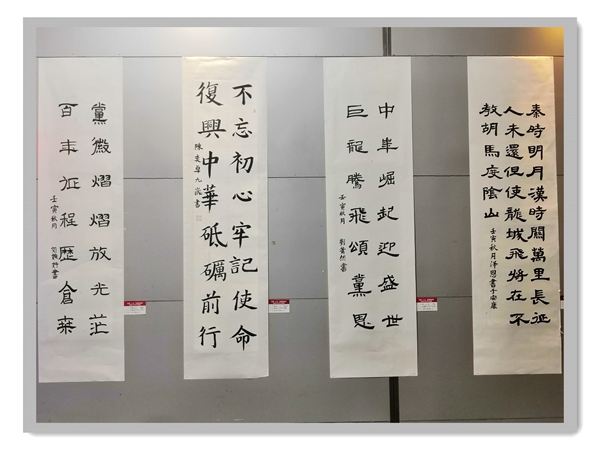 秦時明月漢時關萬里長征
人未還但使龍城飛將在不
教胡馬度陰山
壬寅秋月澤恩書于安康
中華崛起迎盛世
巨龍騰飛頌黨恩
壬寅秋月 書
不忘初心牢記使命
復興中華砥礪前行
陳奕卓九歲書
黨徽熠熠放光芒
百年征程歷滄桑
壬寅秋月 書